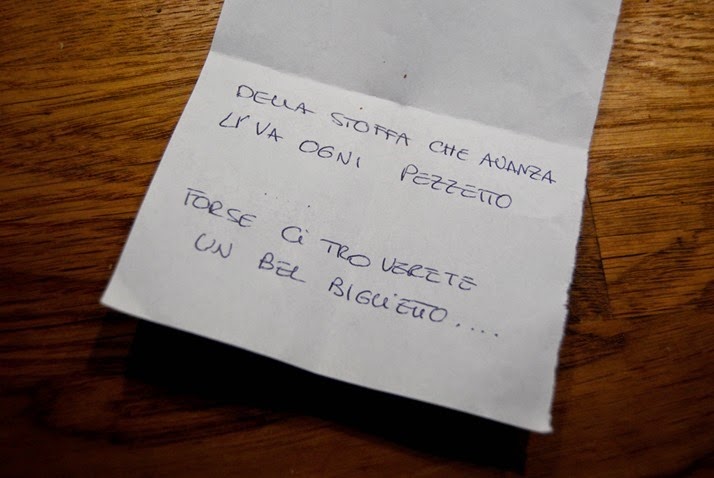 DELLA STOFFA CHE AVANZA
LI' VA OGNI PEZZETTO
FORSE Ci TROVERETE
UN BEL BIGLIETTO.....